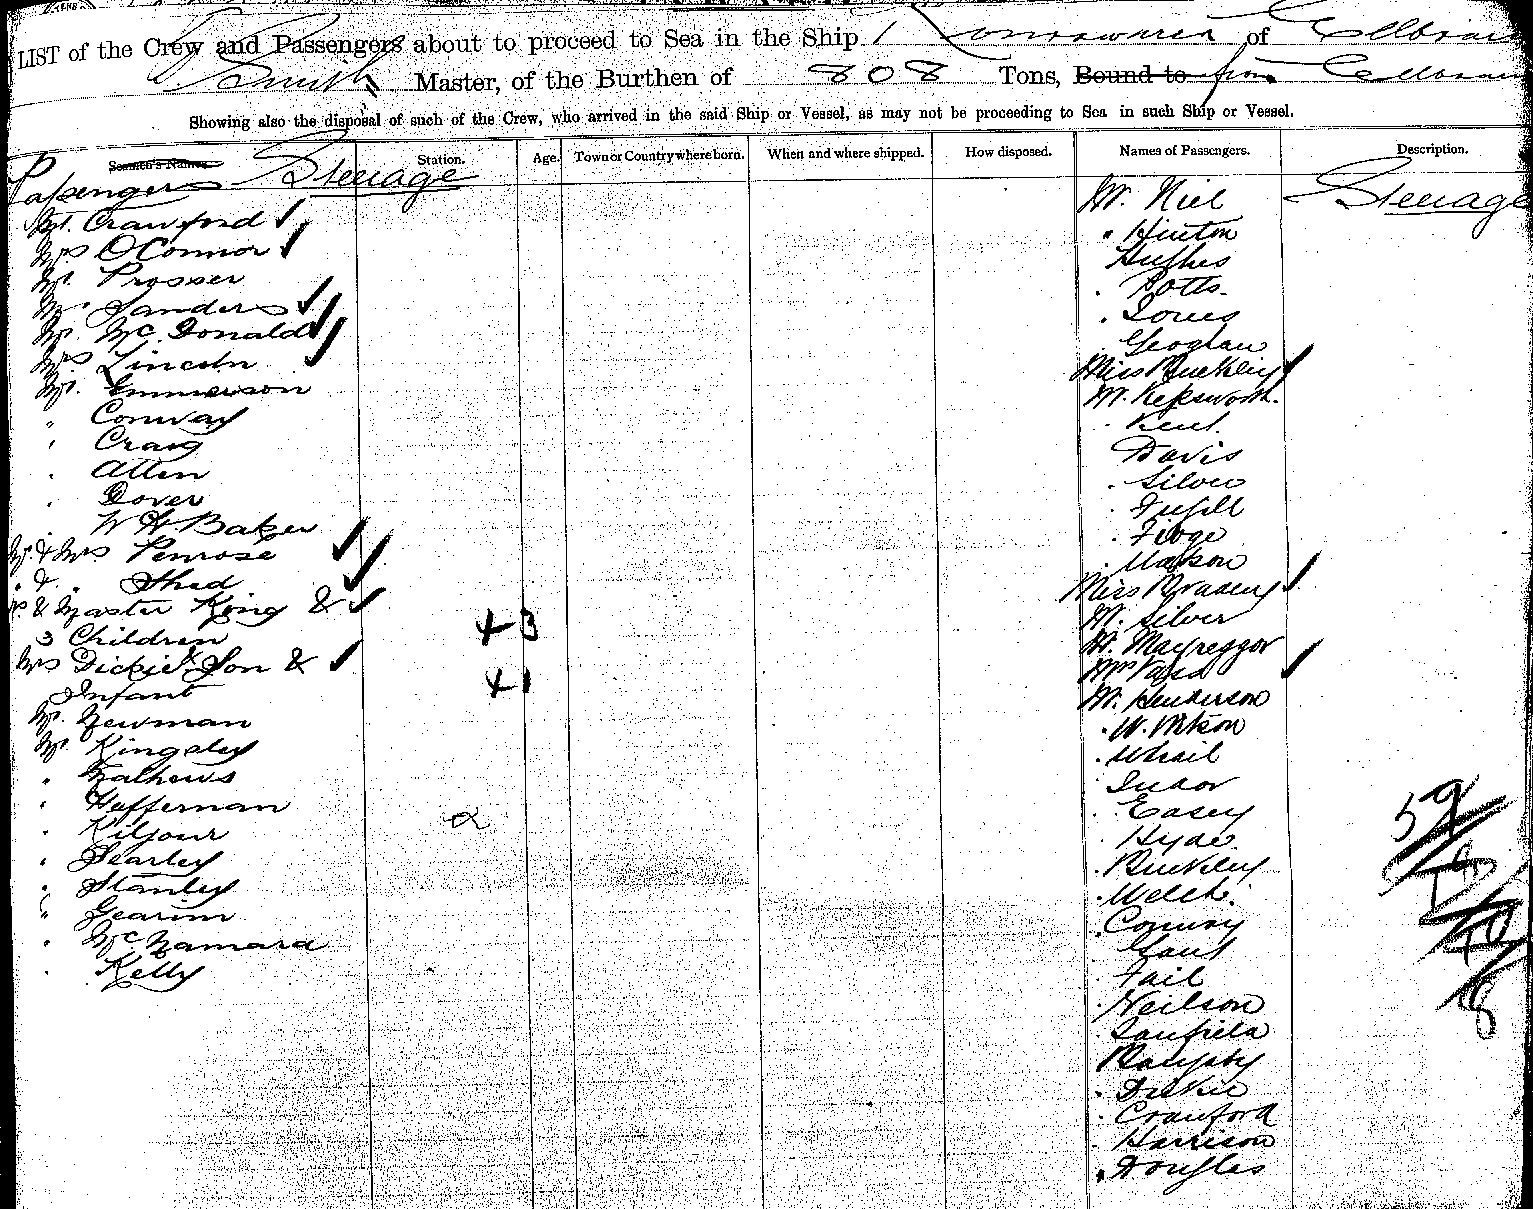 LIST of the Crew and Passengers about to proceed to Sea in the Ship of
Smith Master, of the Burthen of 808 Tons, Bound to from
Showing also the disposal of such of the Crew, who arrived in the said Ship or Vessel, as may not be proceeding to Sea in such Ship or Vessel.
Seamen's Names. Station. Age. Town or Country where born. When and where shipped. How disposed. Names of Passengers. Description.
Passengers Steerage
Mr. Crawford
Mrs O'Connor
Mr. Prosser
Mr Sanders
Mr. McDonald
Mrs Lincoln
Mr. Emmerson
" Conway
" Craig
" Allen
" Dover
W H Baker
Mr. & Mrs Penrose
" & " Shad
& Master King &
3 Children + 3
Mrs Dickie & Son &
Infant + 1
Mr. Newman
Mr. Kingsley
" Mathews
" Heffernan
" Kilgour
" Searley
" Stanley
" Gearin
" McNamara
" Kelly
Steerage
Mr. Niel
" Hinton
Hughes
" Potts
" Jones
Geoghan
Miss Buckley
Mr. Kepsworth
" Kent
Davis
" Silver
" Tufill
"
" Watson
Miss
Mr. Silver
Mr. Macgreggor
Mrs
Mr. Henderson
" W. Watson
"
" Tudor
" Easey
" Hyde
" Buckley
" Welch
" Conway
" Gaul
" Tail
" Neilson
"
"
" Dickie
" Crawford
" Harrison
" Douglas
59
10
8